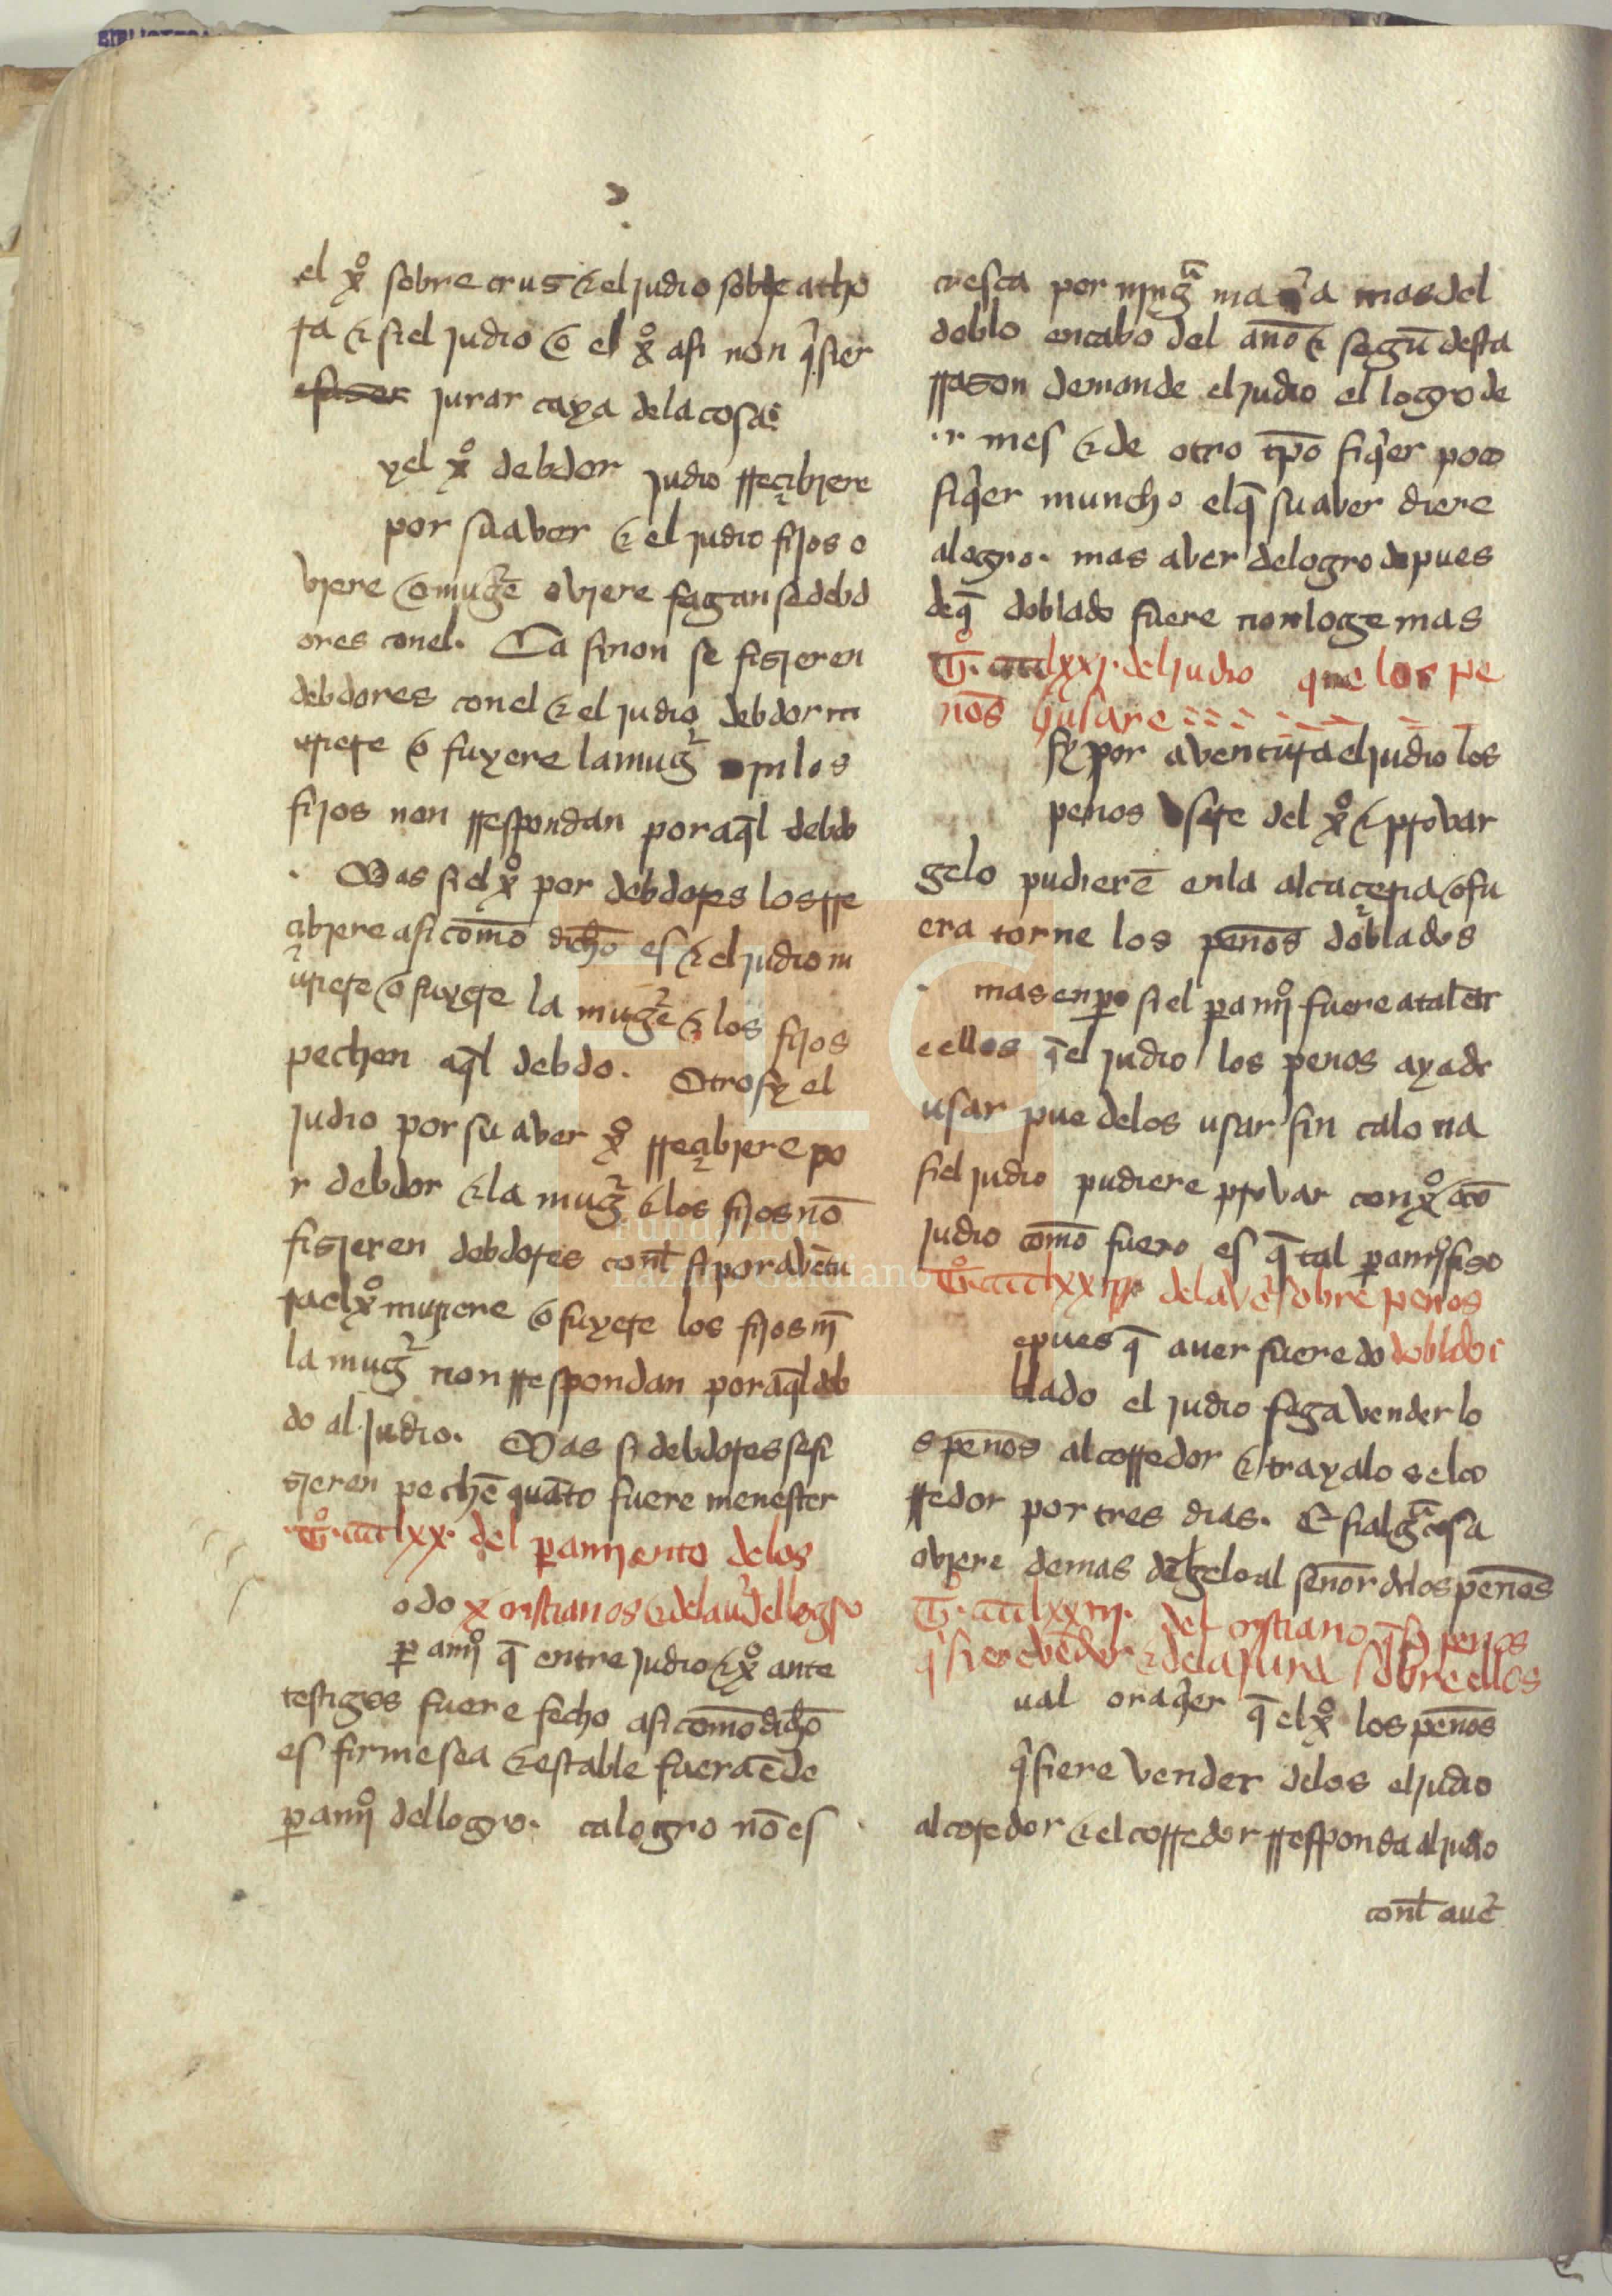 el xº sobre crus & el judio sobre atho
ra & si el judio o el xº asi non qisier
jurar caya dela cosa
y el xº debdor judio rreçibiere
por su aver & el judio fijos o
viere o muger oviere fagan se debd
ores conel. Ca sinon se fisieren
debdores conel & el judio debdor m
uriere o fuyere la mugr nin los
fijos non rrespondan por aql debdo
. Mas si el xº por debdores los rre
çibiere asi como dicho es & el judio m
uriere o fuyere la muger & los fijos
pechen aql debdo. Otrosy el
judio por su aver xº rreçibiere po
r debdor & la mugr & los fijos nō
fisieren debdores conl si por avētu
ra el xº muriere o fuyere los fijos nī
la mugr non rrespondan por aql deb
do al judio. Mas si debdores se fi
sieren pechē quāto fuere menester
Tº. lxx. del paramiento delos
odo xristianos & del aver del logro
paramº q̄ entre judio & xº ante
testigos fuere fecho asi como dicho
es firme sea & estable fuera ēde
paramº del logro. ca logro nō es
cresca por ningª maña mas del
doblo en cabo del año & segū desta
rrason demande el judio el logro de
.i. mes & de otro tpō siqer poco
siqer muncho el q̄ su aver diere
alogro. mas aver de logro depues
de q̄ doblado fuere non loge mas
Tº. lxxi. del judio que los pe
ños usare
sy por aventura el judio los
peños usare del xº & provar
gelo pudierē enla alcaçeria o fu
era torne los peños doblados
. mas enpero si el paramº fuere atal entr
e ellos q̄ el judio los peños aya de
usar puedelos usar sin calona
si el judio pudiere provar con xº & cō
judio como fuero es q̄ tal paramº fiso
Tº. lxxii. del aver sobre peños
epues q̄ aver fuere do doblado
blado el judio faga vender lo
s peños al corredor & trayalos el co
rredor por tres dias. E si algª cosa
oviere demas delgelo al señor delos peños
Tº. lxxiii. del cristiano q̄ sus peños
qisiere vēder & dela jura sobre ellos
ual ora qer q̄ el xº los peños
qisiere vender delos el judio
al coredor & el corredor rresponda al judio
conl aver